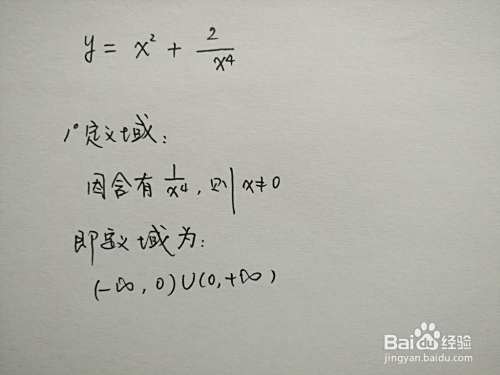 y = x² + 2/x⁴
1° 定义域:
因含有 1/x⁴, 则 x≠0
即定义域为:
(-∞, 0)∪(0,+∞)
Baidu 经验
jingyan.baidu.com